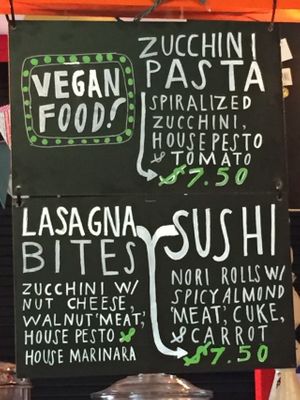 VEGAN
FOOD!
ZUCCHINI
PASTA
SPIRALIZED
ZUCCHINI,
HOUSE PESTO
& TOMATO
$7.50
LASAGNA
BITES
ZUCCHINI W/
NUT CHEESE,
WALNUT 'MEAT',
HOUSE PESTO &
HOUSE MARINARA
SUSHI
NORI ROLLS W/
SPICY ALMOND
'MEAT', CUKE,
& CARROT
$7.50